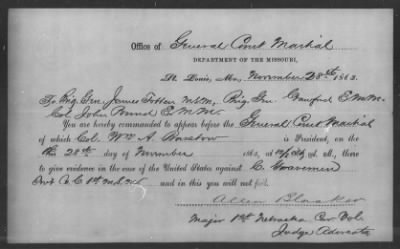 Office of General Court Martial
DEPARTMENT OF THE MISSOURI,
St. Louis, Mo, November 28th 1863.
To Brig. Gen. James Totten M.S.M., Brig. Gen E.M.M.
Col. John E.M.M.
You are hereby commanded to appear before the General Court Martial
of which Col. Wm A. Barstow is President, on
the 28th day of November 1863, at there
to give evidence in the case of the United States against C.
Pvt Co C 1st and in this you will not fail.
Allen Blacker
Major 1st Nebraska Cav Vols
Judge Advocate